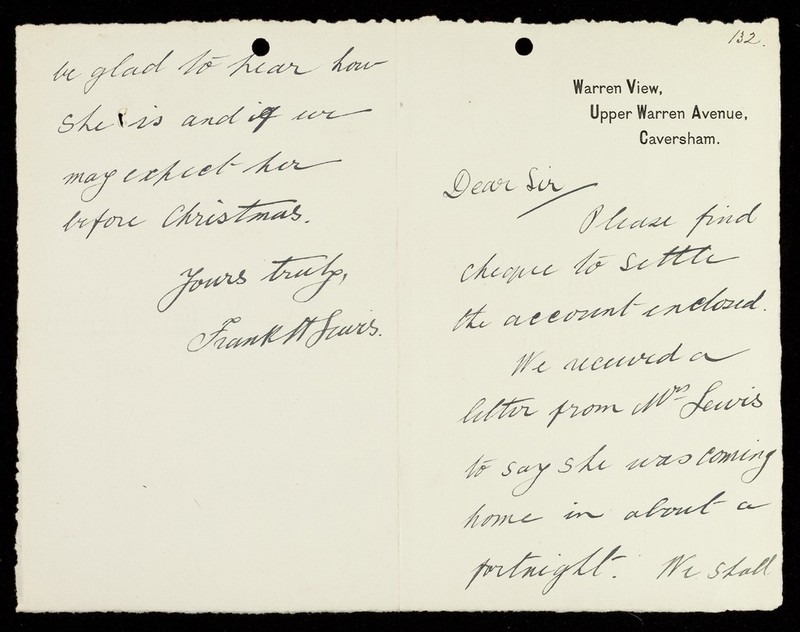 132.
Warren View,
Upper Warren Avenue,
Caversham.
Dear Sir
Please find
cheque to settle
the account enclosed.
We received a
letter from Mrs Lewis
to say she was coming
home in about a
fortnight. We shall
be glad to hear how
she is and if we
may expect her
before Christmas.
Yours truly,
Frank H Lewis.